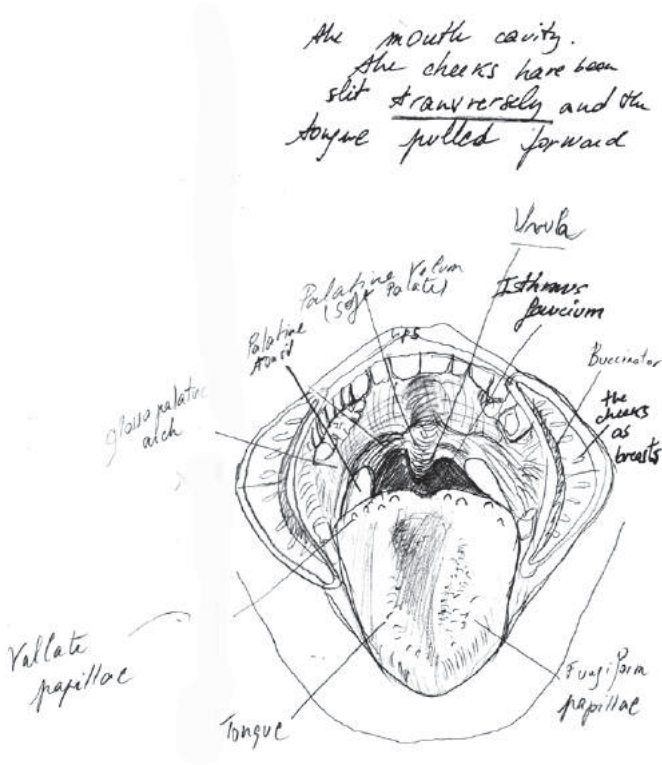 the mouth cavity.
the cheeks have been
slit transversely and the
tongue pulled forward
Uvula
Palatine Velum
(Soft Palate)
Isthmus
faucium
Palatine
tonsil
Lips
Buccinator
the
cheeks
as
breasts
glossopalatine
arch
Vallate
papillae
Tongue
Fungiform
papillae